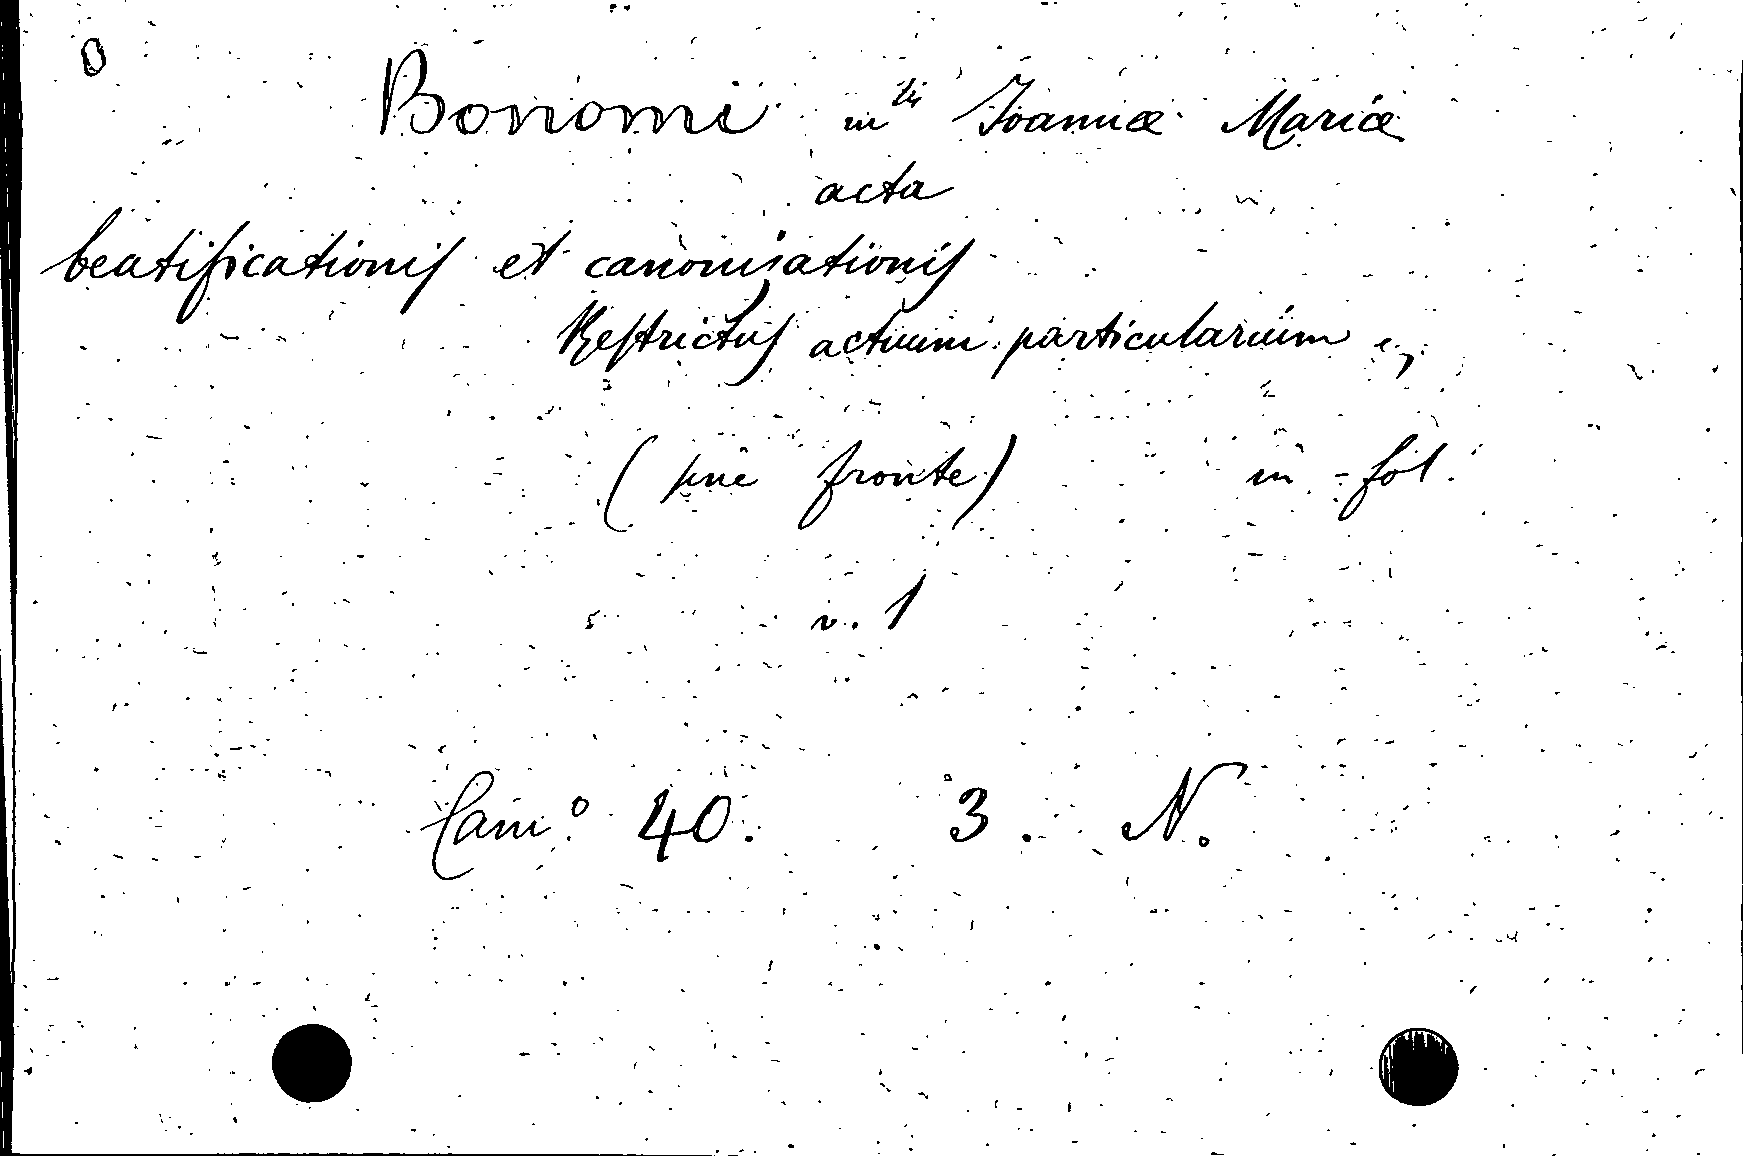 0
Bonomi Joannæ Mariæ
acta
beatificationis et canonisationis
Restrictus actuum particularium
(sine fronte) in-fol.
v. 1
Cam.° 40. 3. N.